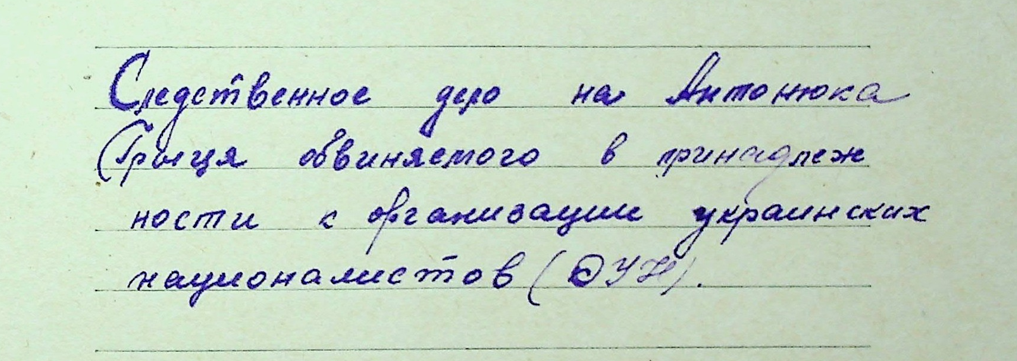 Следственное дело на Антонюка
Грыця обвиняемого в принадлеж
ности к организации украинских
националистов (ОУН).